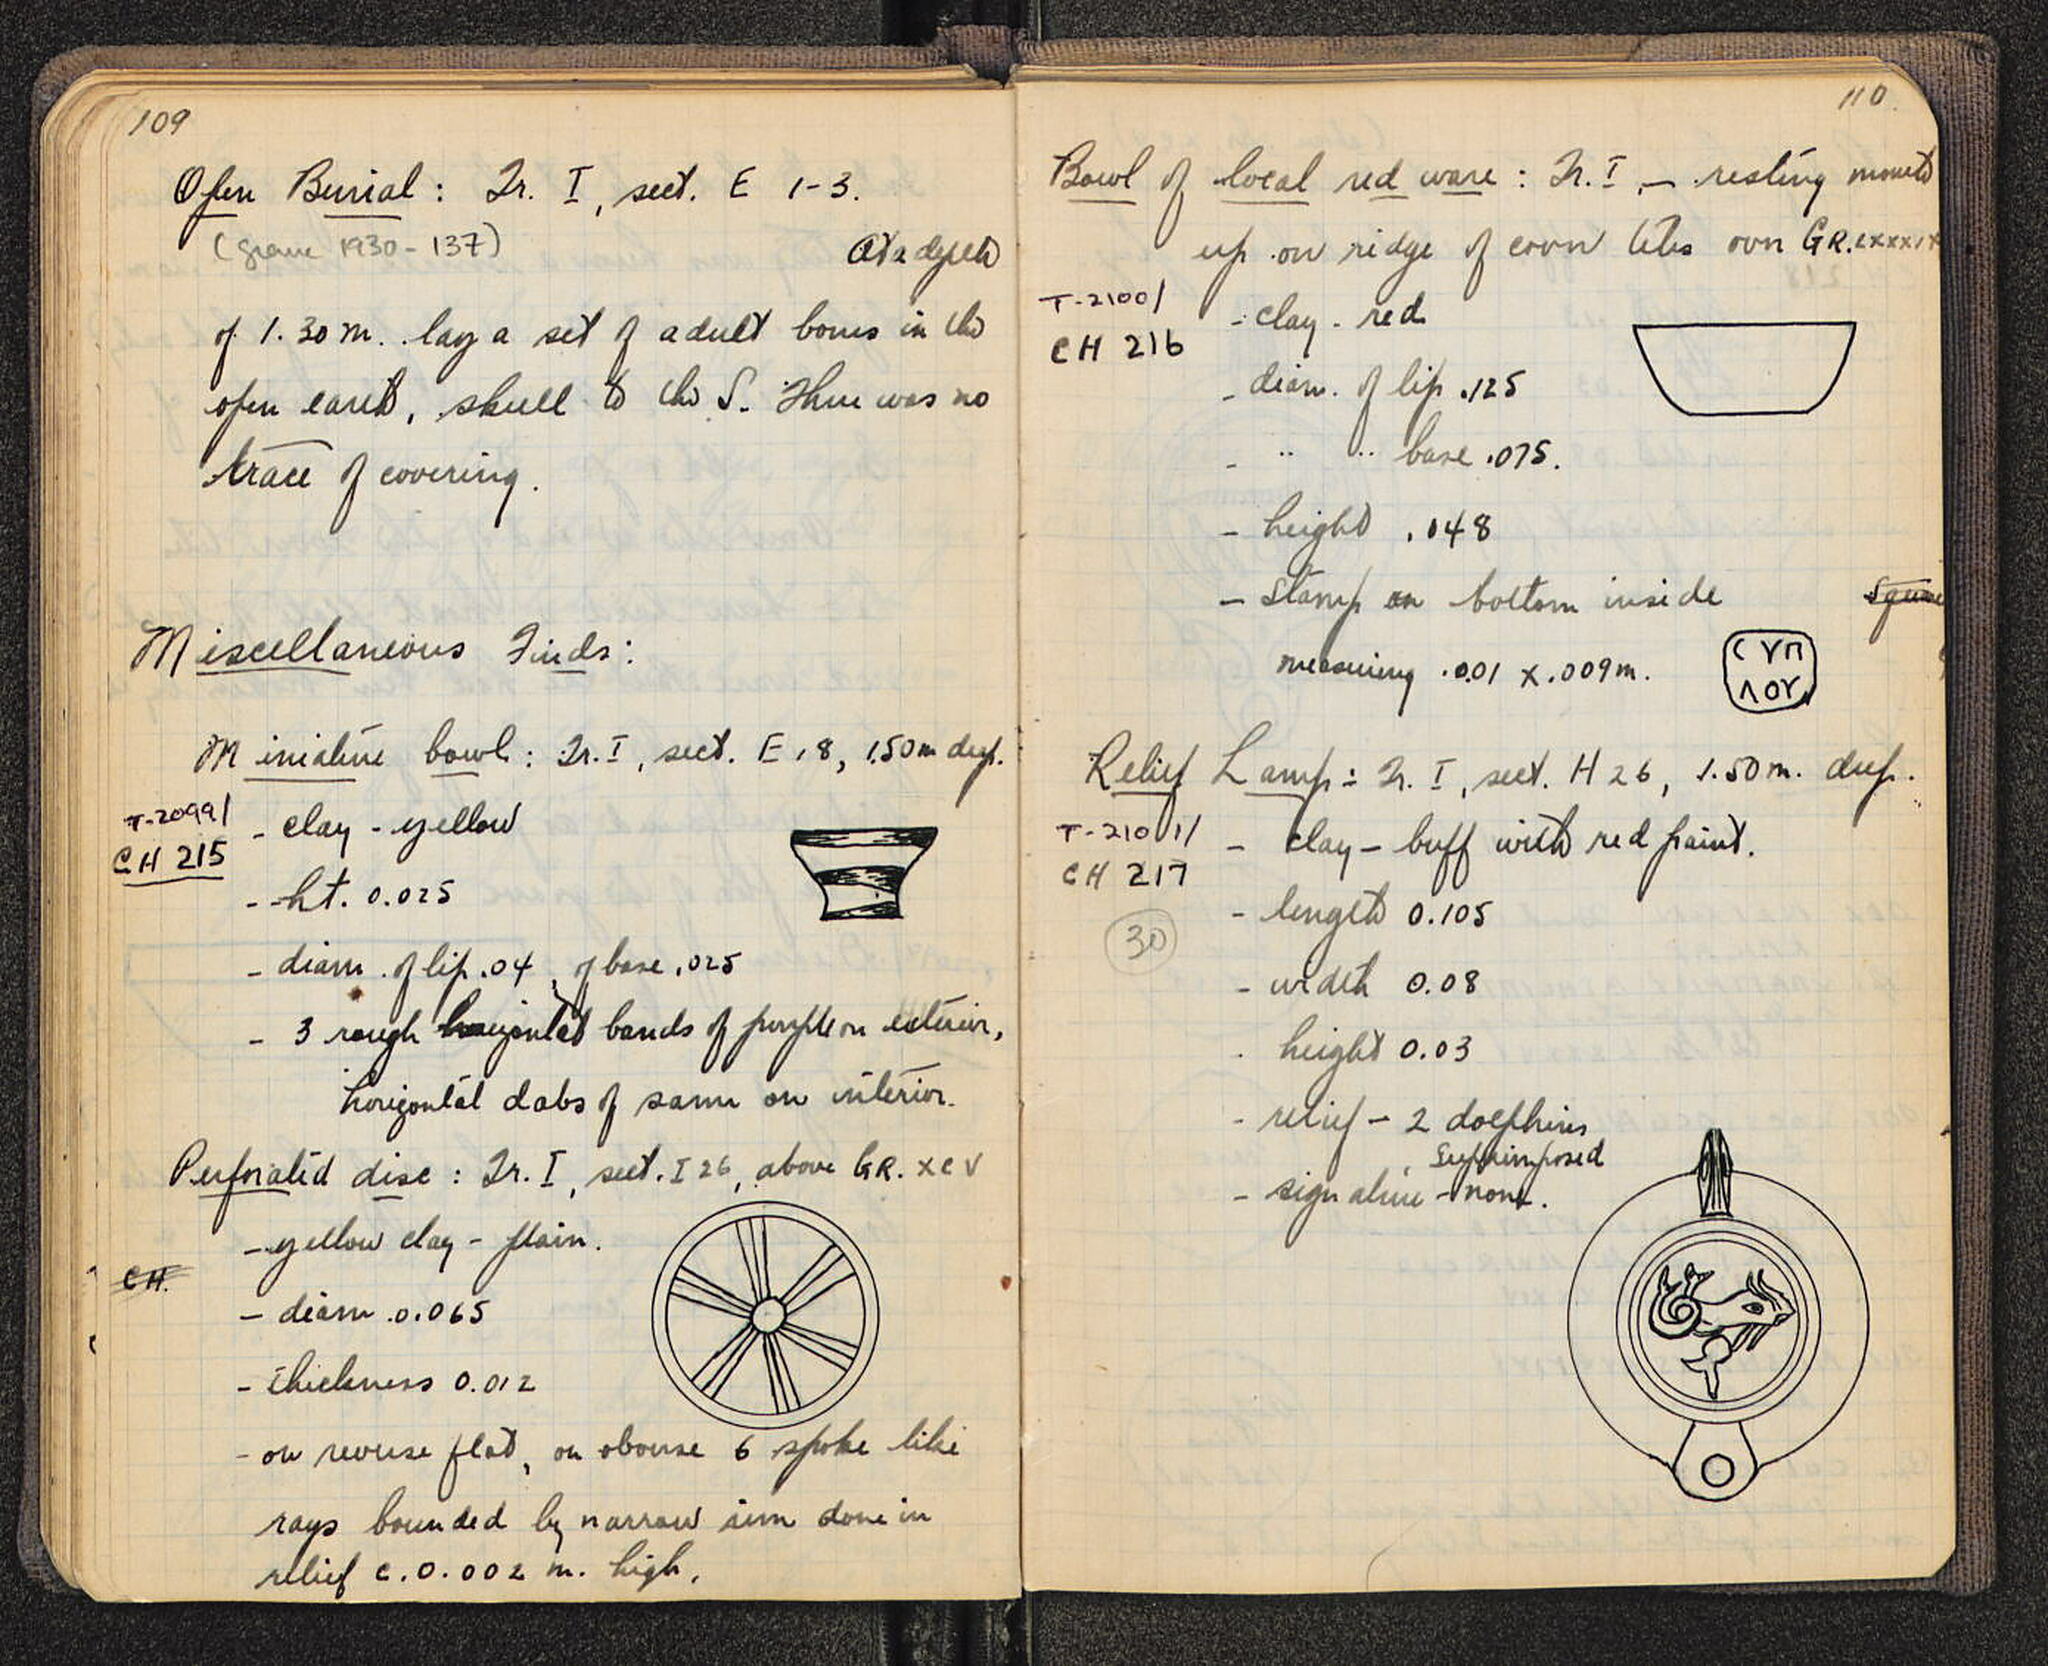 109
Open Burial: Tr. I, sect. E 1-3.
(grave 1930-137)
At a depth
of 1.30 m. lay a set of adult bones in the
open earth, skull to the S. There was no
trace of covering.
Miscellaneous Finds:
Miniature bowl: Tr. I, sect. E 18, 1.50 m deep.
T-2099/
CH 215
- clay - yellow
- ht. 0.025
- diam. of lip .04, of base .025
- 3 rough horizontal bands of purple on exterior,
horizontal dabs of same on interior.
Perforated disc: Tr. I, sect. I 26, above GR. XCV
- yellow clay - plain.
CH.
- diam 0.065
- thickness 0.012
- on reverse flat, on obverse 6 spoke like
rays bounded by narrow rim done in
relief c. 0.002 m. high.
110
Bowl of local red ware: Tr. I, - resting mouth
up on ridge of cover tiles over GR. LXXXIX
T-2100/
CH 216
- clay - red
- diam. of lip .125
- " " base .075.
- height .048
- Stamp on bottom inside
Square
measuring .001 x .009 m.
CΥΠ
ΛΟΥ
Relief Lamp: Tr. I, sect. H 26, 1.50 m. deep.
T-2101/
CH 217
30
- clay - buff with red paint.
- length 0.105
- width 0.08
- height 0.03
- relief - 2 dolphins
superimposed
- signature - none.